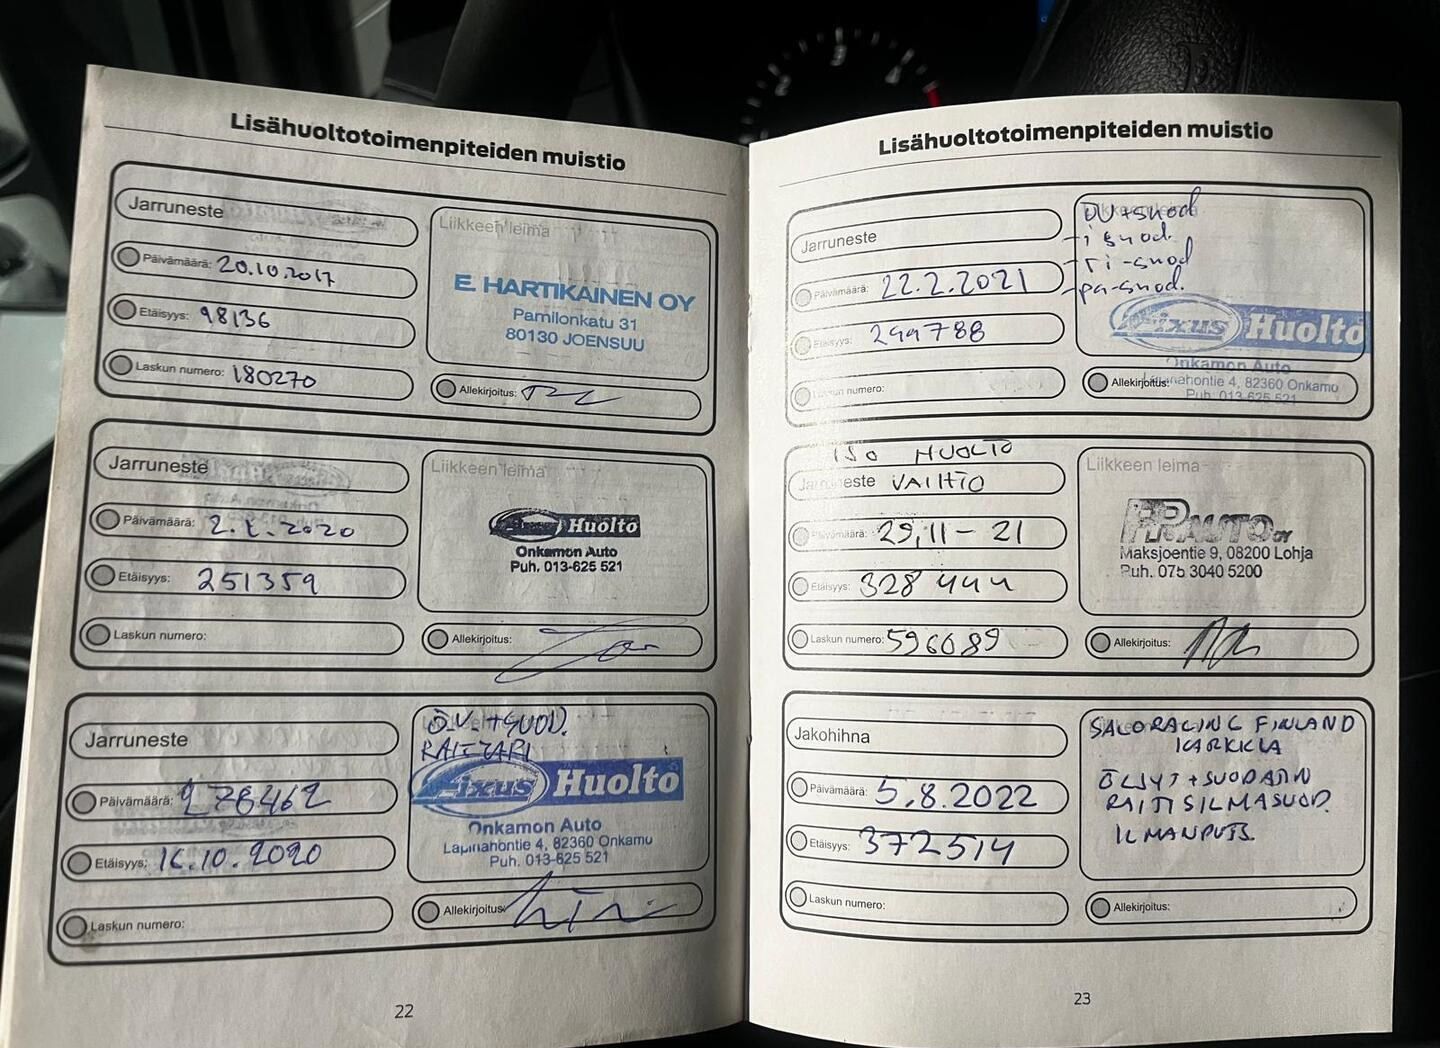 Lisähuoltotoimenpiteiden muistio
Jarruneste
Päivämäärä: 20.10.2017
Etäisyys: 98136
Laskun numero: 180270
Liikkeen leima
E. HARTIKAINEN OY
Pamilonkatu 31
80130 JOENSUU
Allekirjoitus:
Jarruneste
Päivämäärä: 2.1.2020
Etäisyys: 251359
Laskun numero:
Liikkeen leima
Fixus Huolto
Onkamon Auto
Puh. 013-625 521
Allekirjoitus:
Jarruneste
Päivämäärä: 278462
Etäisyys: 16.10.2020
Laskun numero:
Ö.V. +SUOD.
Fixus Huolto
Onkamon Auto
Lapinahontie 4, 82360 Onkamo
Puh. 013-625 521
Allekirjoitus:
22
Lisähuoltotoimenpiteiden muistio
Jarruneste
Päivämäärä: 22.2.2021
Etäisyys: 299788
Laskun numero:
ÖV+suod
-i suod.
-ri-suod
-pa-suod.
Fixus Huolto
Onkamon Auto
Lapinahontie 4, 82360 Onkamo
Puh. 013-625 521
Allekirjoitus:
ISO HUOLTO
Jarruneste VAIHTO
Päivämäärä: 29,11-21
Etäisyys: 328444
Laskun numero: 596089
Liikkeen leima
AUTO OY
Maksjoentie 9, 08200 Lohja
Puh. 075 3040 5200
Allekirjoitus:
Jakohihna
Päivämäärä: 5.8.2022
Etäisyys: 372514
Laskun numero:
SALORACING FINLAND
KARKKILA
ÖLJYT+SUODATIN
RAITISILMASUOD.
ILMANPUTS.
Allekirjoitus:
23
2
3
4